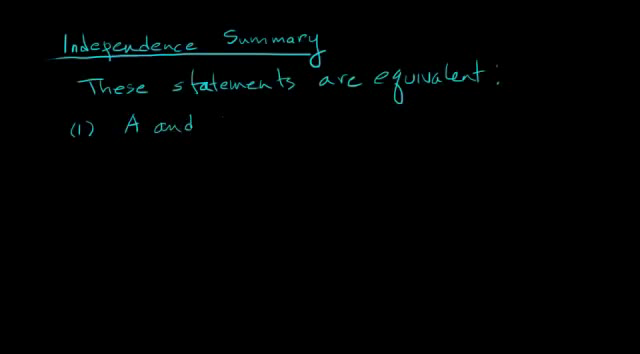 Independence Summary
These statements are equivalent:
(1) A and